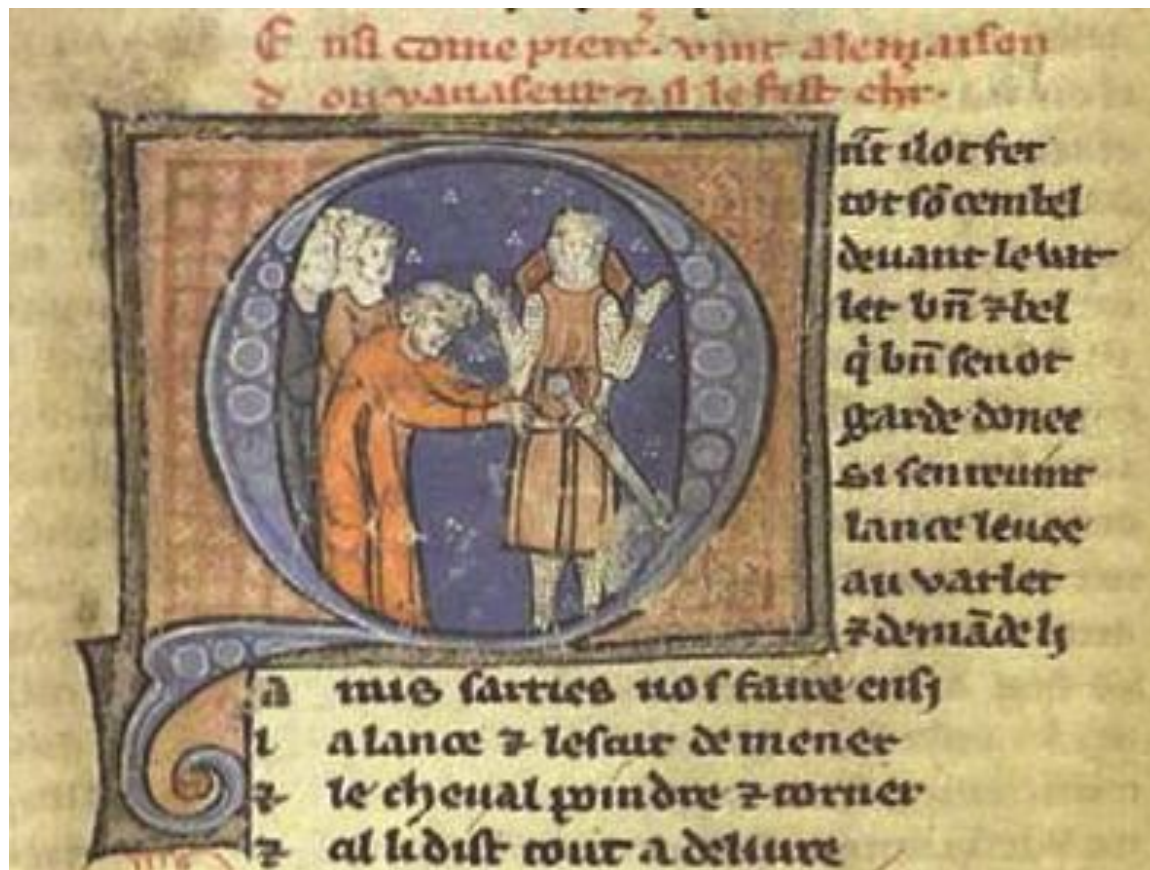 E nsi come vint alemaison
d ou vauaseur ⁊ il le fist chr.
n̄t il ot fet
tot sō cembel
deuant le vat
let bn̄ ⁊ bel
q̇ bn̄ sen ot
garde donee
si sen reuint
lance leuee
au varlet
⁊ demāde lj
a mis sarries uos faire ensj
l a lance ⁊ lescut demener
⁊ le cheual poindre ⁊ torner
⁊ cil li dist tout a deliure